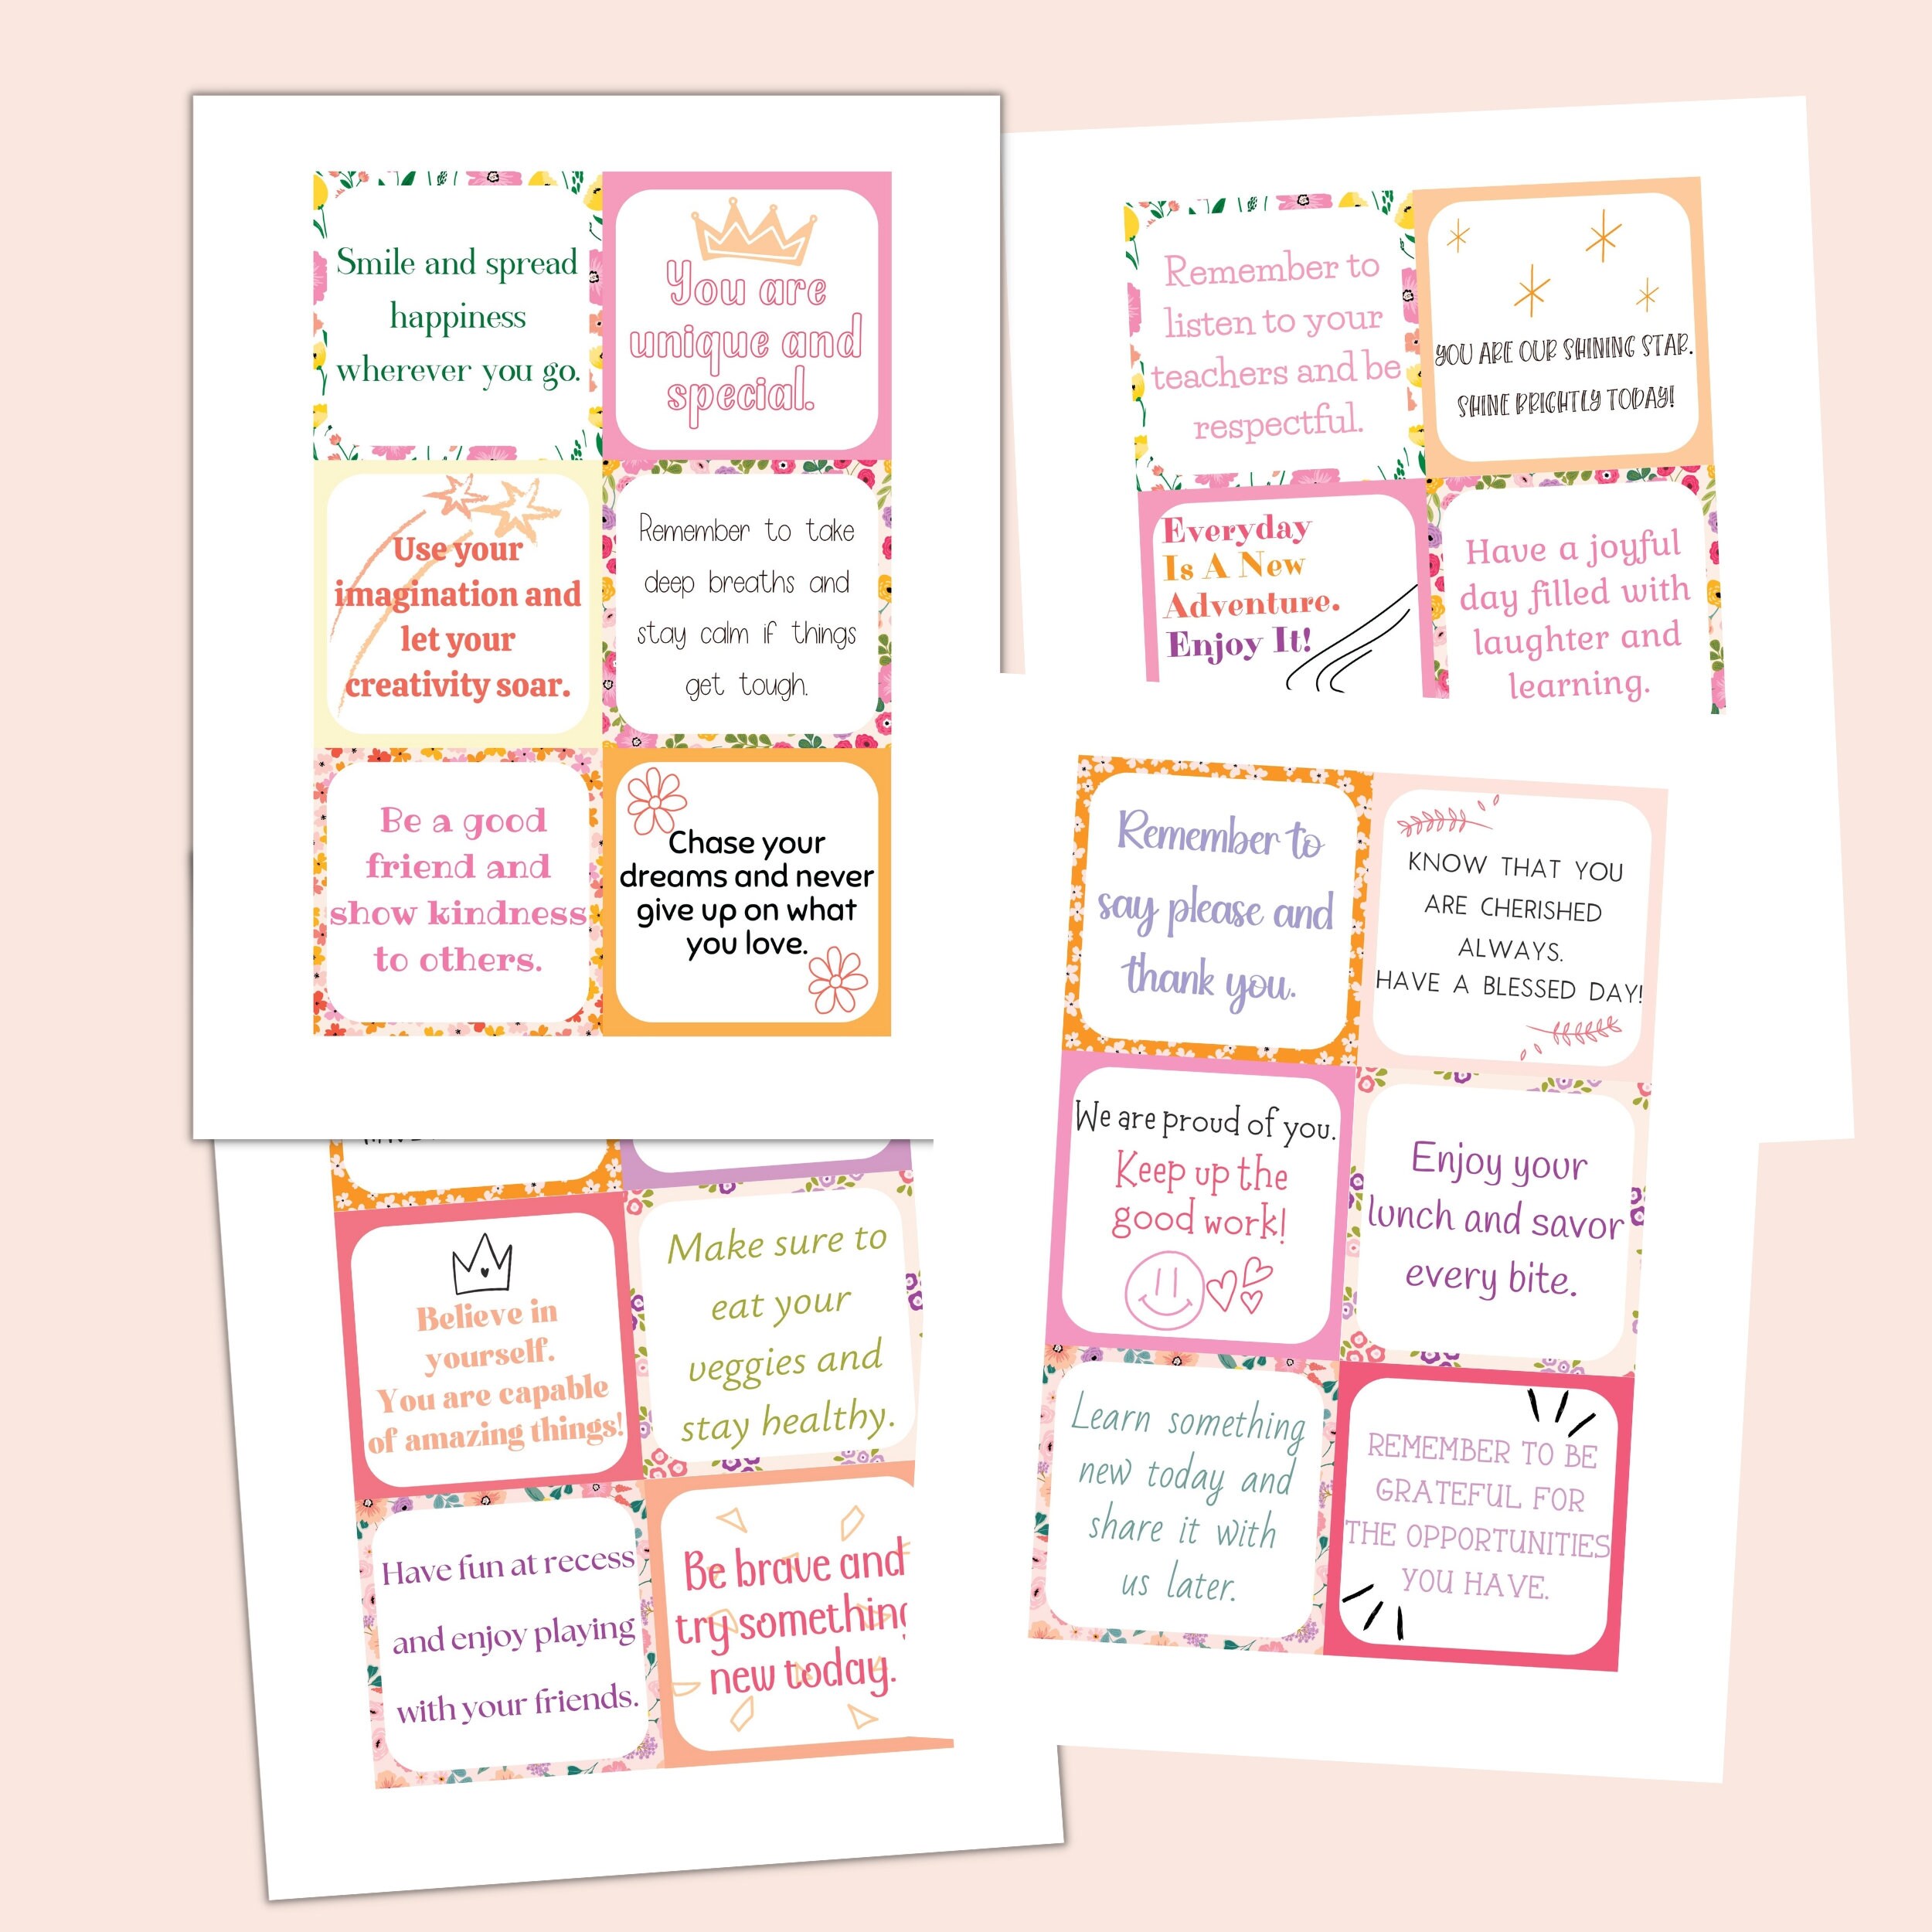 Smile and spread
happiness
wherever you go.
You are
unique and
special.
Use your
imagination and
let your
creativity soar.
Remember to take
deep breaths and
stay calm if things
get tough.
Be a good
friend and
show kindness
to others.
Chase your
dreams and never
give up on what
you love.
Remember to
listen to your
teachers and be
respectful.
YOU ARE OUR SHINING STAR.
SHINE BRIGHTLY TODAY!
Everyday
Is A New
Adventure.
Enjoy It!
Have a joyful
day filled with
laughter and
learning.
Remember to
say please and
thank you.
KNOW THAT YOU
ARE CHERISHED
ALWAYS.
HAVE A BLESSED DAY!
We are proud of you.
Keep up the
good work!
Enjoy your
lunch and savor
every bite.
Learn something
new today and
share it with
us later.
REMEMBER TO BE
GRATEFUL FOR
THE OPPORTUNITIES
YOU HAVE.
Believe in
yourself.
You are capable
of amazing things!
Make sure to
eat your
veggies and
stay healthy.
Have fun at recess
and enjoy playing
with your friends.
Be brave and
try something
new today.